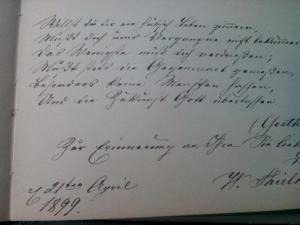 Willst du dir ein hübsch Leben zimmern,
Mußt dich ums Vergangne nicht bekümmern
Das Wenigste muß dich verdrießen;
Mußt stets die Gegenwart genießen,
Besonders keine Menschen hassen,
Und die Zukunft Gott überlassen
(Goethe
Zur Erinnerung an Ihre Sie lieb
21ten April W. Thiel
1899.